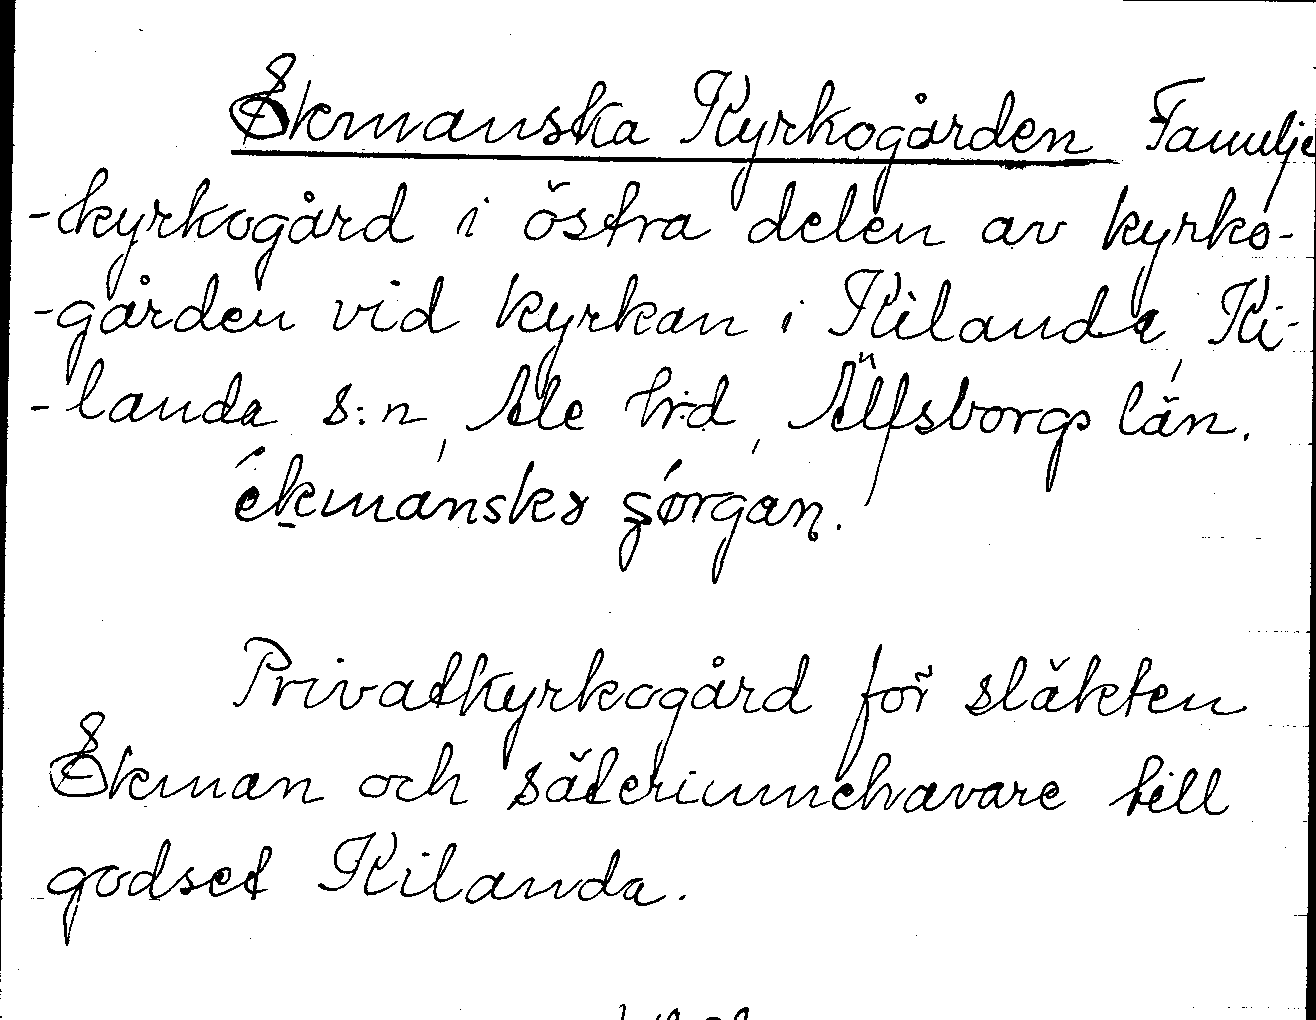 Ekmanska Kyrkogården Familje
-kyrkogård i östra delen av kyrko-
-gården vid kyrkan i Kilanda, Ki-
-landa s:n, Ale h:d, Älfsborgs län.
Privatkyrkogård för släkten
Ekman och säteriinnehavare till
godset Kilanda.